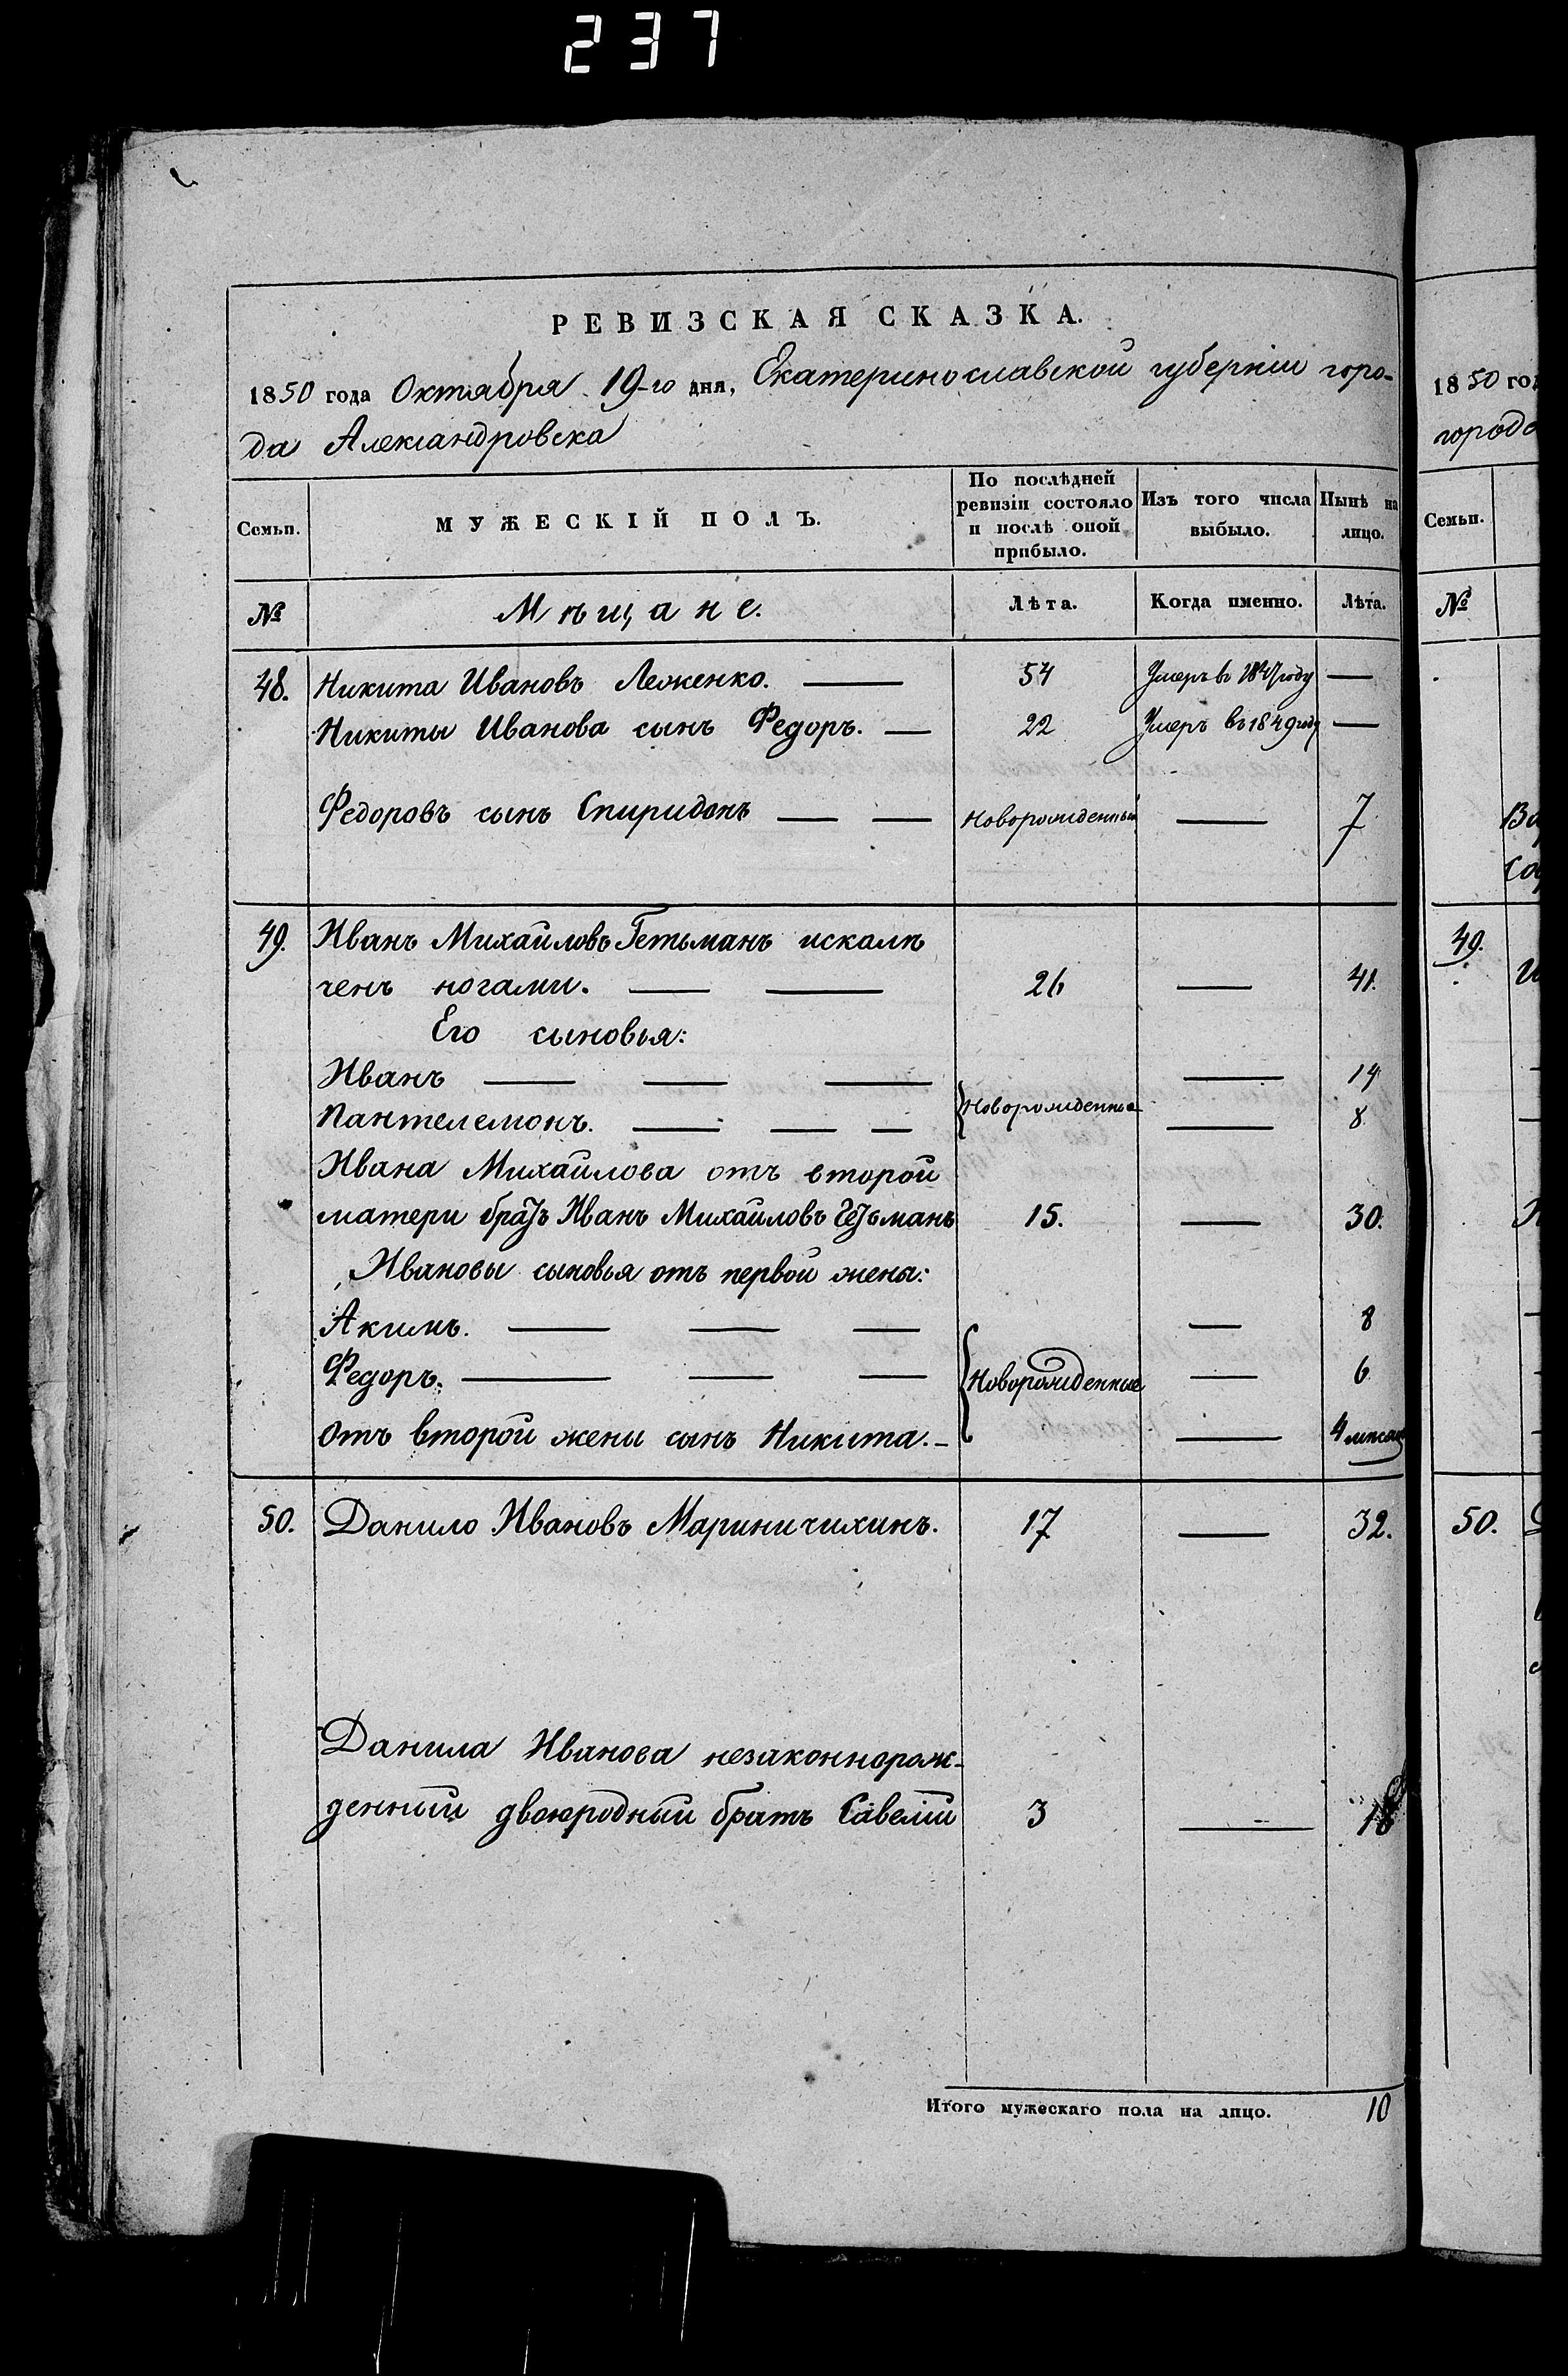 237
РЕВИЗСКАЯ СКАЗКА.
1850 года Октября 19-го дня, Екатеринославской губерніи горо-
да Александровска
Семьи.
МУЖЕСКІЙ ПОЛЪ.
По послѣдней
ревизіи состояло
и послѣ оной
прибыло.
Изъ того числа
выбыло.
Нынѣ на
лицо.
№ Мѣщане. Лѣта. Когда именно. Лѣта.
48. Никита Ивановъ Леженко. — 54 Умеръ въ 1847 году —
Никиты Иванова сынъ Федоръ. — 22 Умеръ въ 1849 году —
Федоровъ сынъ Спиридонъ — — Новорожденный — 7
49. Иванъ Михайловъ Гетьманъ искалѣ
ченъ ногами. — — 26 — 41.
Его сыновья:
Иванъ — — — — 14
Новорожденные
Пантелемонъ. — — — — 8
Ивана Михайлова отъ второй
матери братъ Иванъ Михайловъ Гетьманъ 15. — 30.
Ивановы сыновья отъ первой жены:
Акимъ. — — — — 8
Федоръ. — — — Новорожденные — 6
Отъ второй жены сынъ Никита. — — 4 мѣсяц
50. Данило Ивановъ Мариничихинъ. 17 — 32.
Данила Иванова незаконнорож-
денный двоюродный братъ Савелій 3 — 18
Итого мужескаго пола на лицо. 10
1850 год
города
Семьи.
№
49.
50.